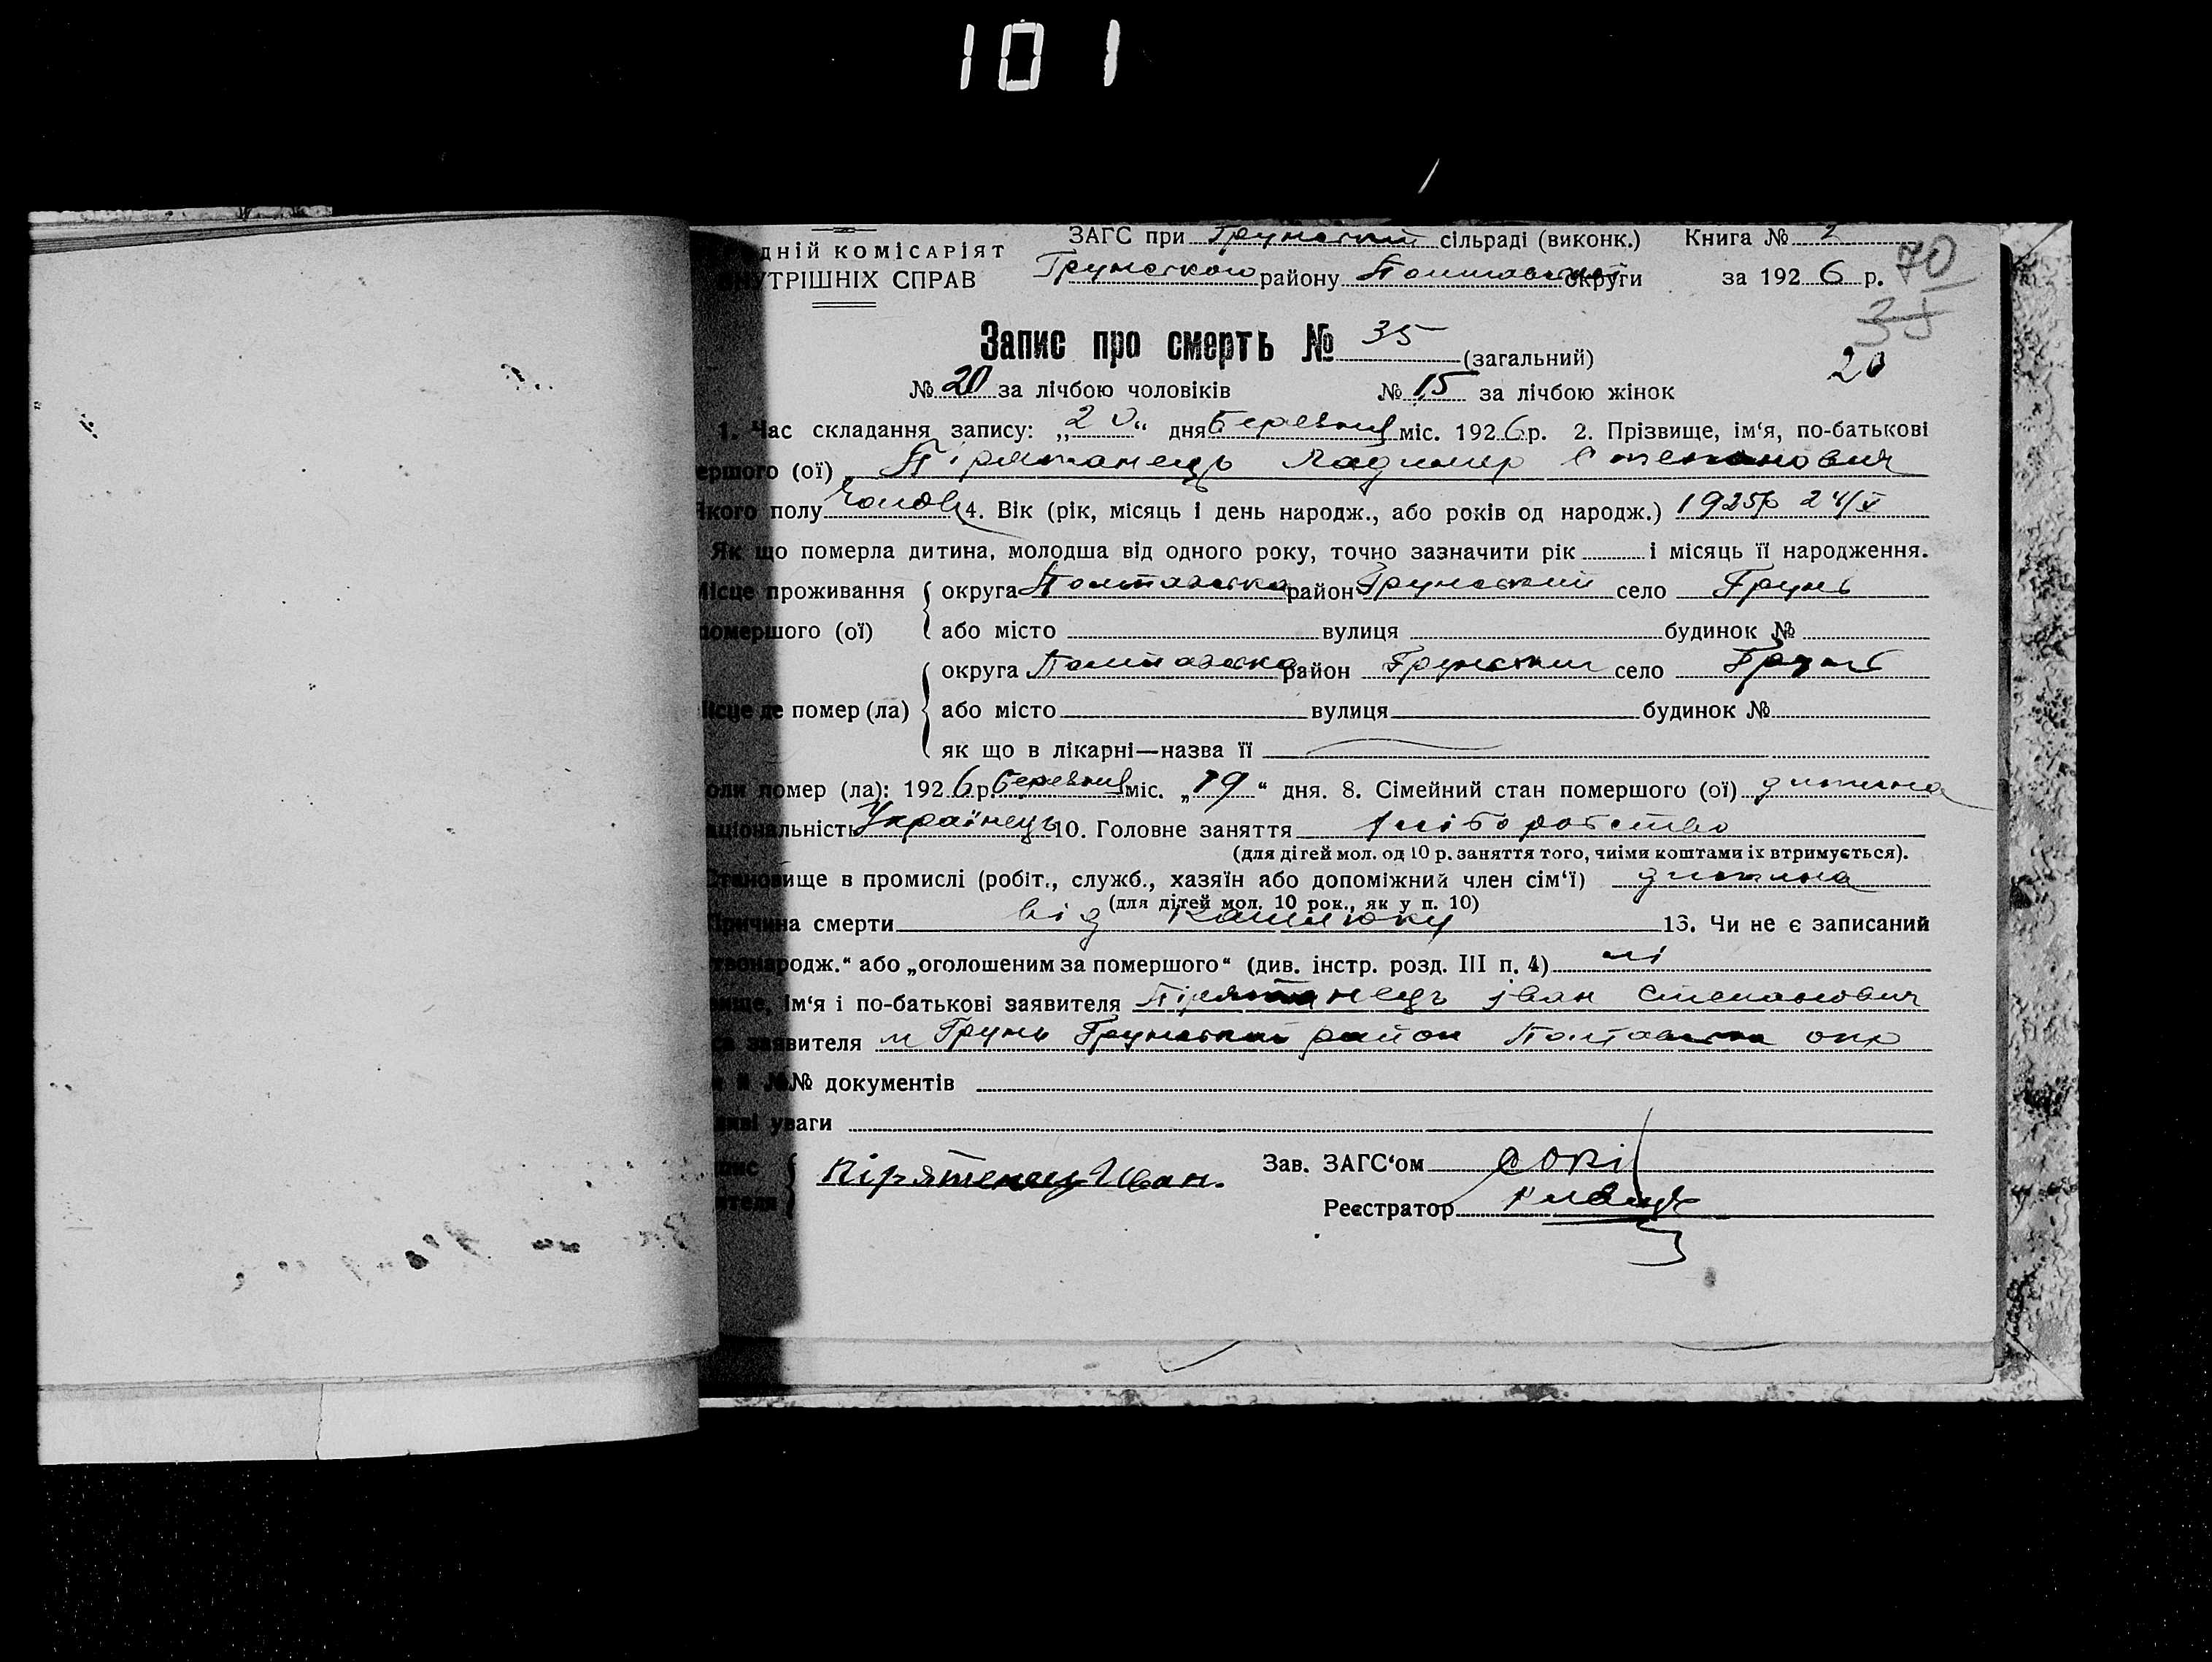 101
дній КОМІСАРІЯТ
УТРІШНІХ СПРАВ
ЗАГС при Грунський сільраді (виконк.) Книга № 2
Грунського району Полтавської округи за 1926 р.
70
35
20
Запис про смерть № 35 (загальний)
№ 20 за лічбою чоловіків № 15 за лічбою жінок
1. Час складання запису: „20“ дня Березня міс. 1926 р. 2. Прізвище, ім‘я, по-батькові
ершого (ої) Пірятанець Ладимер Степанович
кого полу Чолов 4. Вік (рік, місяць і день народж., або років од народж.) 1925р 24/V
Як що померла дитина, молодша від одного року, точно зазначити рік і місяць її народження.
Місце проживання округа Полтавська район Грунський село Грунь
помершого (ої) або місто вулиця будинок №
округа Полтавська район Грунський село Грунь
ісце де помер (ла) або місто вулиця будинок №
як що в лікарні—назва її
оли помер (ла): 1926 р Березня міс. „19“ дня. 8. Сімейний стан помершого (ої) дитина
аціональність Українець 10. Головне заняття хліборобство
(для дітей мол. од 10 р. заняття того, чиїми коштами їх втримується).
Становище в промислі (робіт., служб., хазяїн або допоміжний член сім‘ї) дитина
(для дітей мол. 10 рок., як у п. 10)
Причина смерти від кашлюку 13. Чи не є записаний
твонародж.“ або „оголошеним за помершого“ (див. інстр. розд. III п. 4) ні
вище, ім‘я і по-батькові заявителя Пірятанець іван Степанович
са заявителя м Грунь Грунський район Полтавська окр
й №№ документів
ливі уваги
пис Пірятенец Иван. Зав. ЗАГС‘ом
ителя Реєстратор